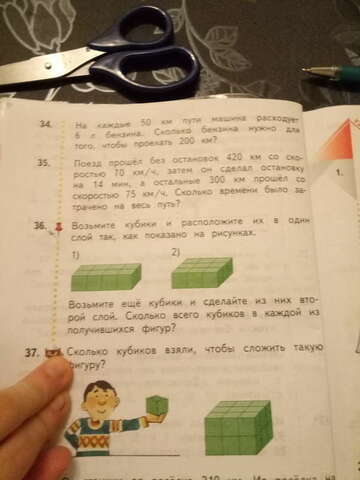 34. На каждые 50 км пути машина расходует
6 л бензина. Сколько бензина нужно для
того, чтобы проехать 200 км?
35. Поезд прошёл без остановок 420 км со ско-
ростью 70 км/ч, затем он сделал остановку
на 14 мин, а остальные 300 км прошёл со
скоростью 75 км/ч. Сколько времени было за-
трачено на весь путь?
36. Возьмите кубики и расположите их в один
слой так, как показано на рисунках.
1) 2)
Возьмите ещё кубики и сделайте из них вто-
рой слой. Сколько всего кубиков в каждой из
получившихся фигур?
37. Сколько кубиков взяли, чтобы сложить такую
фигуру?
1.